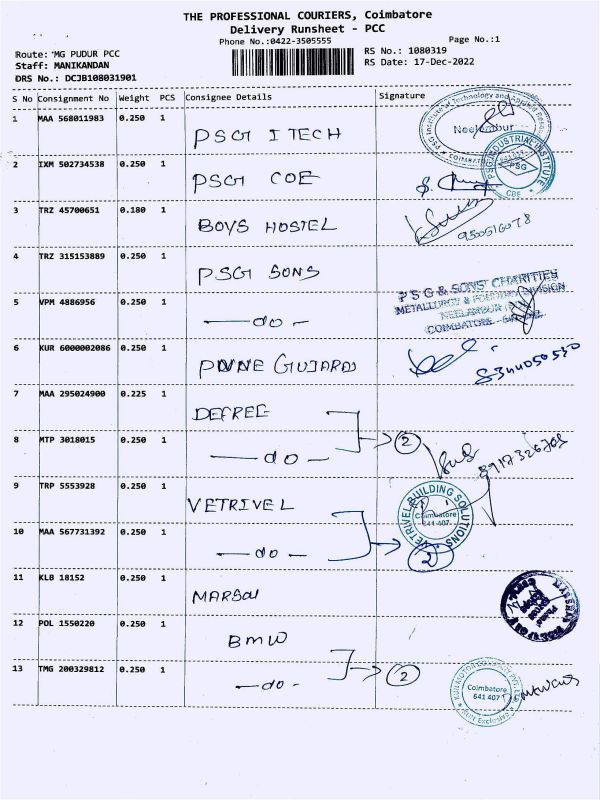 THE PROFESSIONAL COURIERS, Coimbatore
Delivery Runsheet - PCC
Phone No.:0422-3505555
Page No.:1
Route: MG PUDUR PCC
RS No.: 1080319
Staff: MANIKANDAN
RS Date: 17-Dec-2022
DRS No.: DCJB108031901
S No Consignment No Weight PCS Consignee Details Signature
1 MAA 568011983 0.250 1 PSG I TECH
Neelambur
2 IXM 502734538 0.250 1 PSG COE
PSG INDUSTRIAL INSTITUTE
PSG
CBE
3 TRZ 45700651 0.180 1 BOYS HOSTEL
4 TRZ 315153889 0.250 1 PSG SONS
PSG & SONS' CHARITIES
METALLURGY & FOUNDRY DIVISION
NEELAMBUR
5 VPM 4886956 0.250 1 — do —
COIMBATORE
6 KUR 6000002086 0.250 1
7 MAA 295024900 0.225 1
8 MTP 3018015 0.250 1 — do — 2
9 TRP 5553928 0.250 1 VETRIVEL
VETRIVEL BUILDING SOLUTIONS
Coimbatore
641 407
10 MAA 567731392 0.250 1 — do — 2
11 KLB 18152 0.250 1
12 POL 1550220 0.250 1 BMW
13 TMG 200329812 0.250 1 — do — 2
Coimbatore
641 407